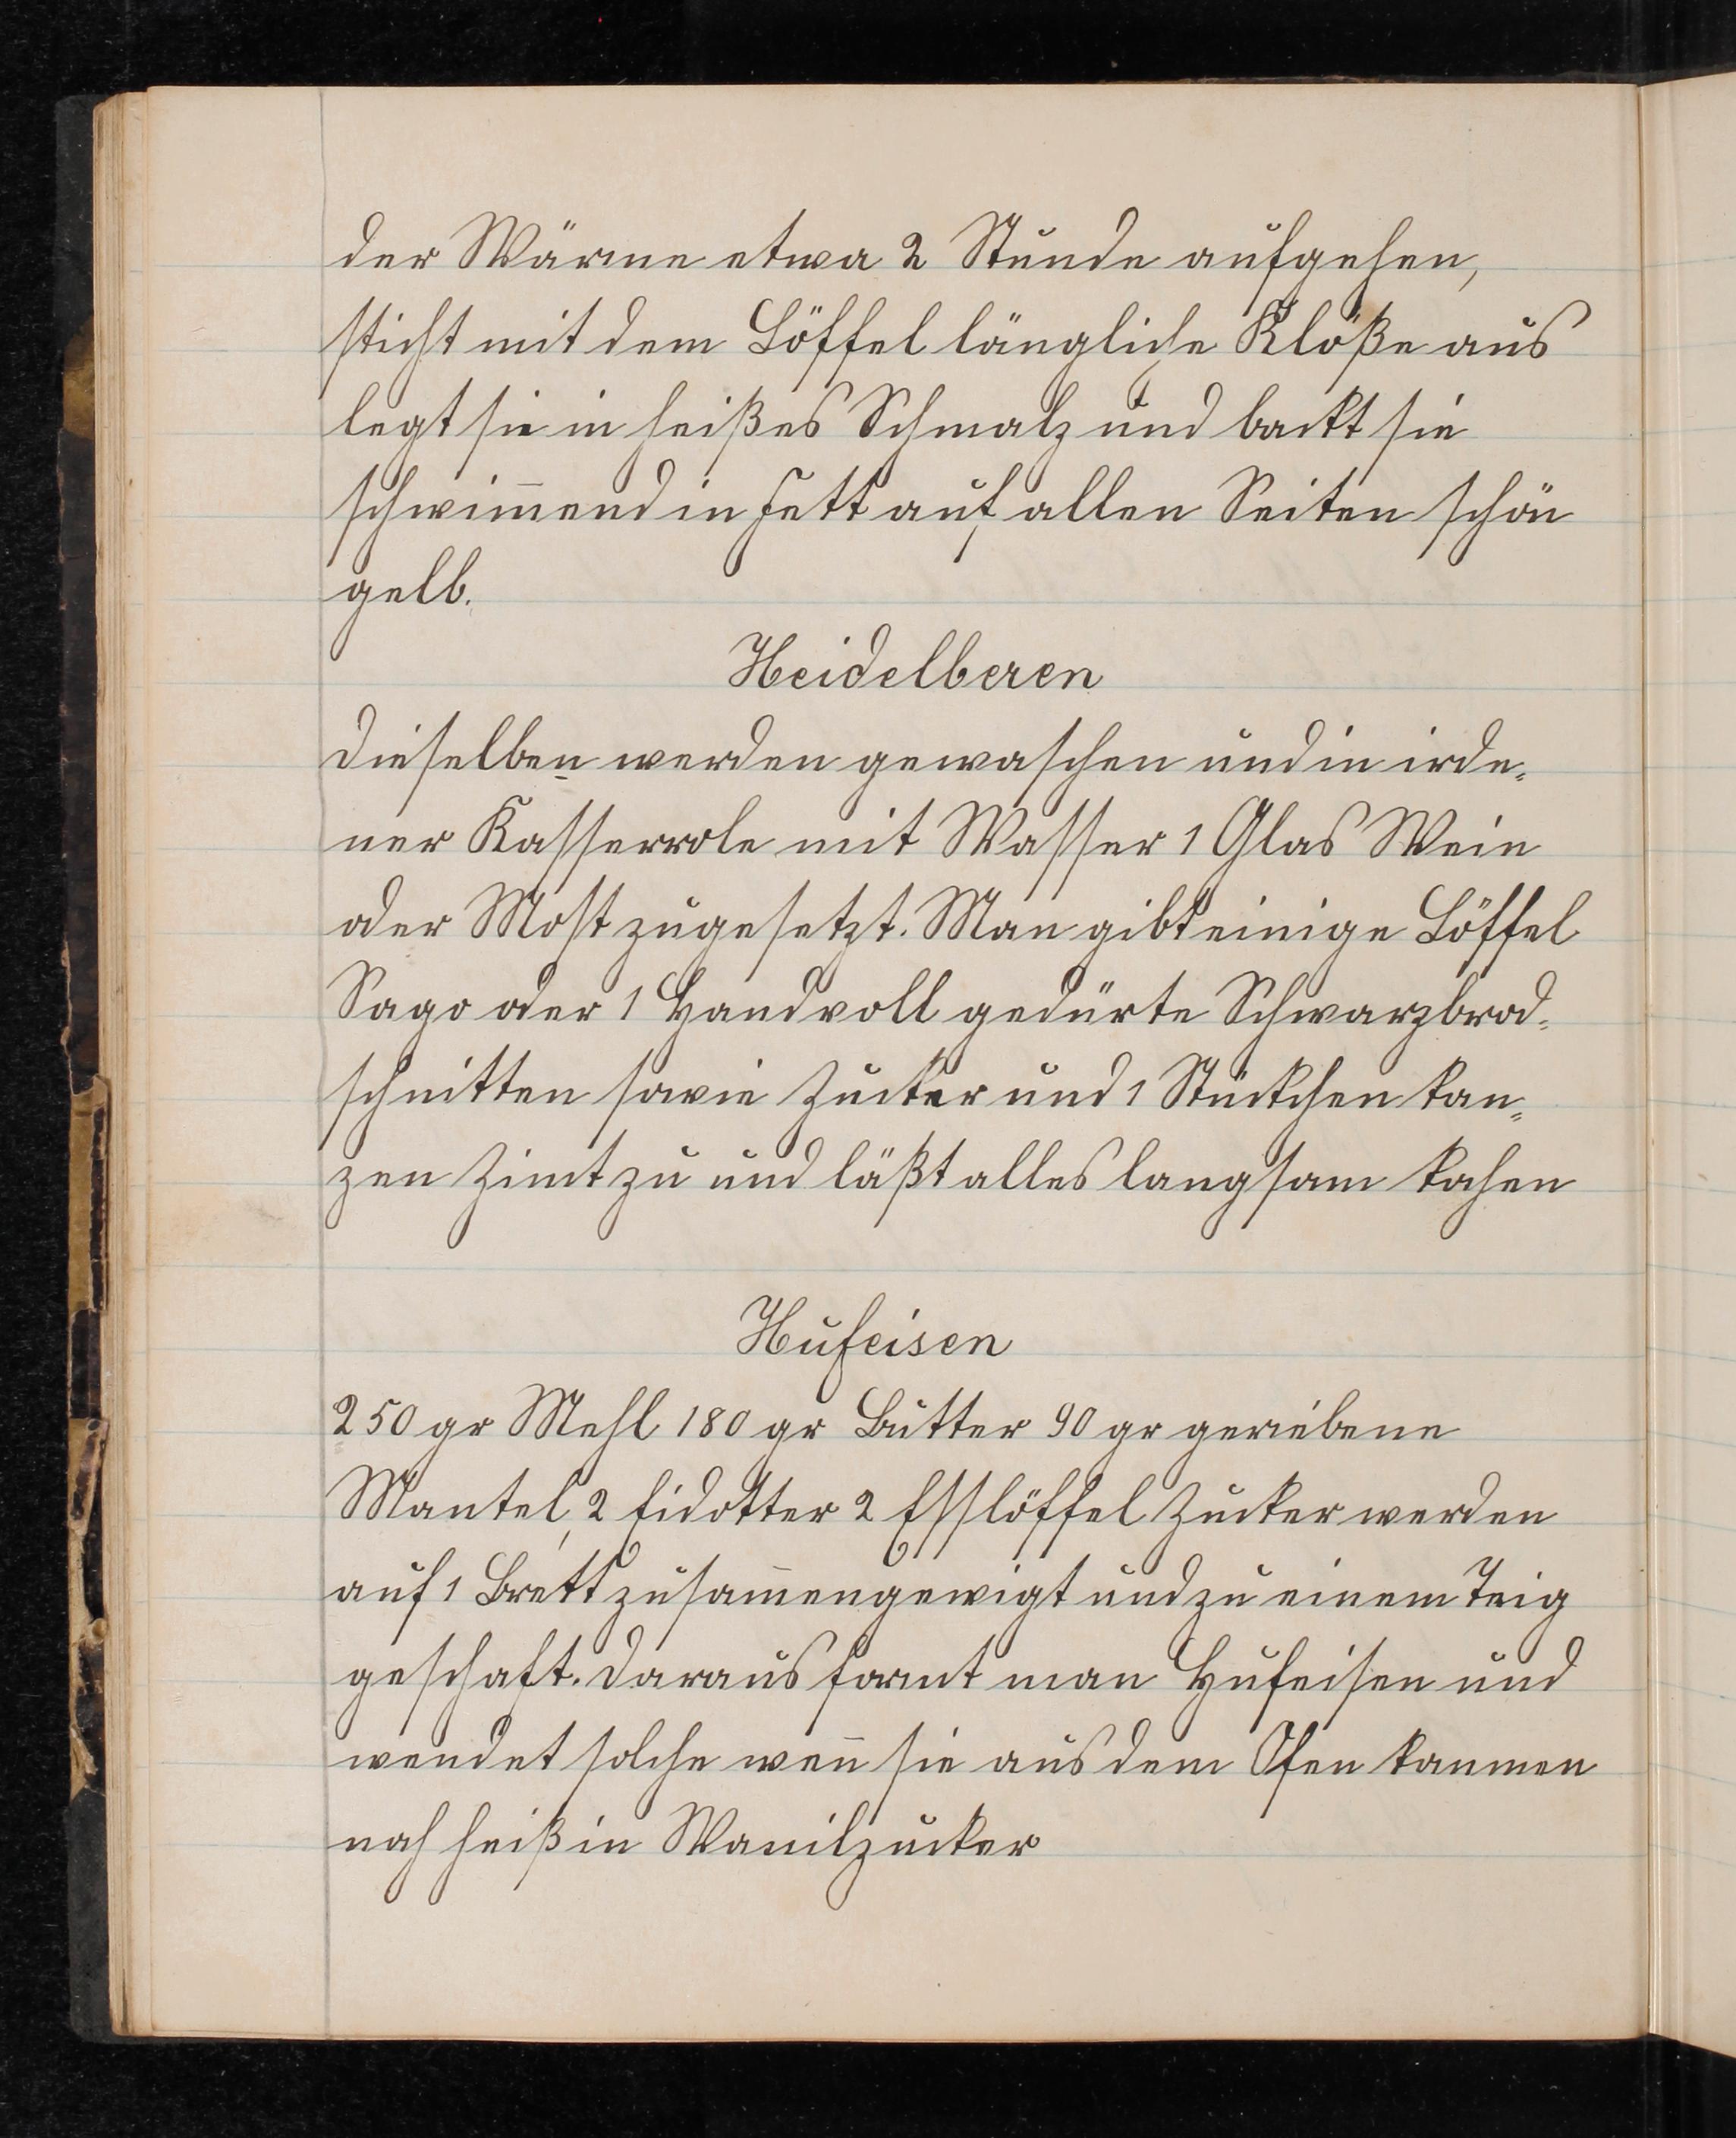 der Wärme etwa 2 Stunde aufgehen,
sticht mit dem Löffel längliche Klöße aus
legt sie in heißes Schmalz und backt sie
schwim̄end in Fett auf allen Seiten schön
gelb.
Heidelberen
Dieselben werden gewaschen und in irde-
ner Kasserrole mit Wasser 1 Glas Wein
oder Most zugesetzt. Man gibt einige Löffel
Sago oder 1 Handvoll gedürte Schwarzbrod-
schnitten sowie Zucker und 1 Stückchen kan-
zen Zimt zu und läßt alles langsam kochen
Hufeisen
250 gr Mehl 180 gr Butter 90 gr geriebene
Mantel, 2 Eidotter 2 Esslöffel Zucker werden
auf 1 Brett zusam̄engewigt und zu einem Teig
geschaft. Daraus formt man Hufeisen und
wendet solche wen̄ sie aus dem Ofen kommen
noch heiß in Wanilzucker